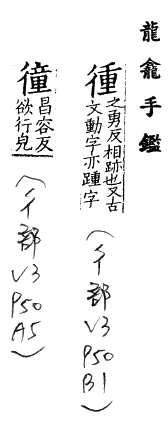 龍龕手鑑
㣫
之勇反相跡也又古
文動字亦踵字
(彳部 V3 P50 B1)
徸
昌容反
欲行皃
(彳部 V3 P50 A5)